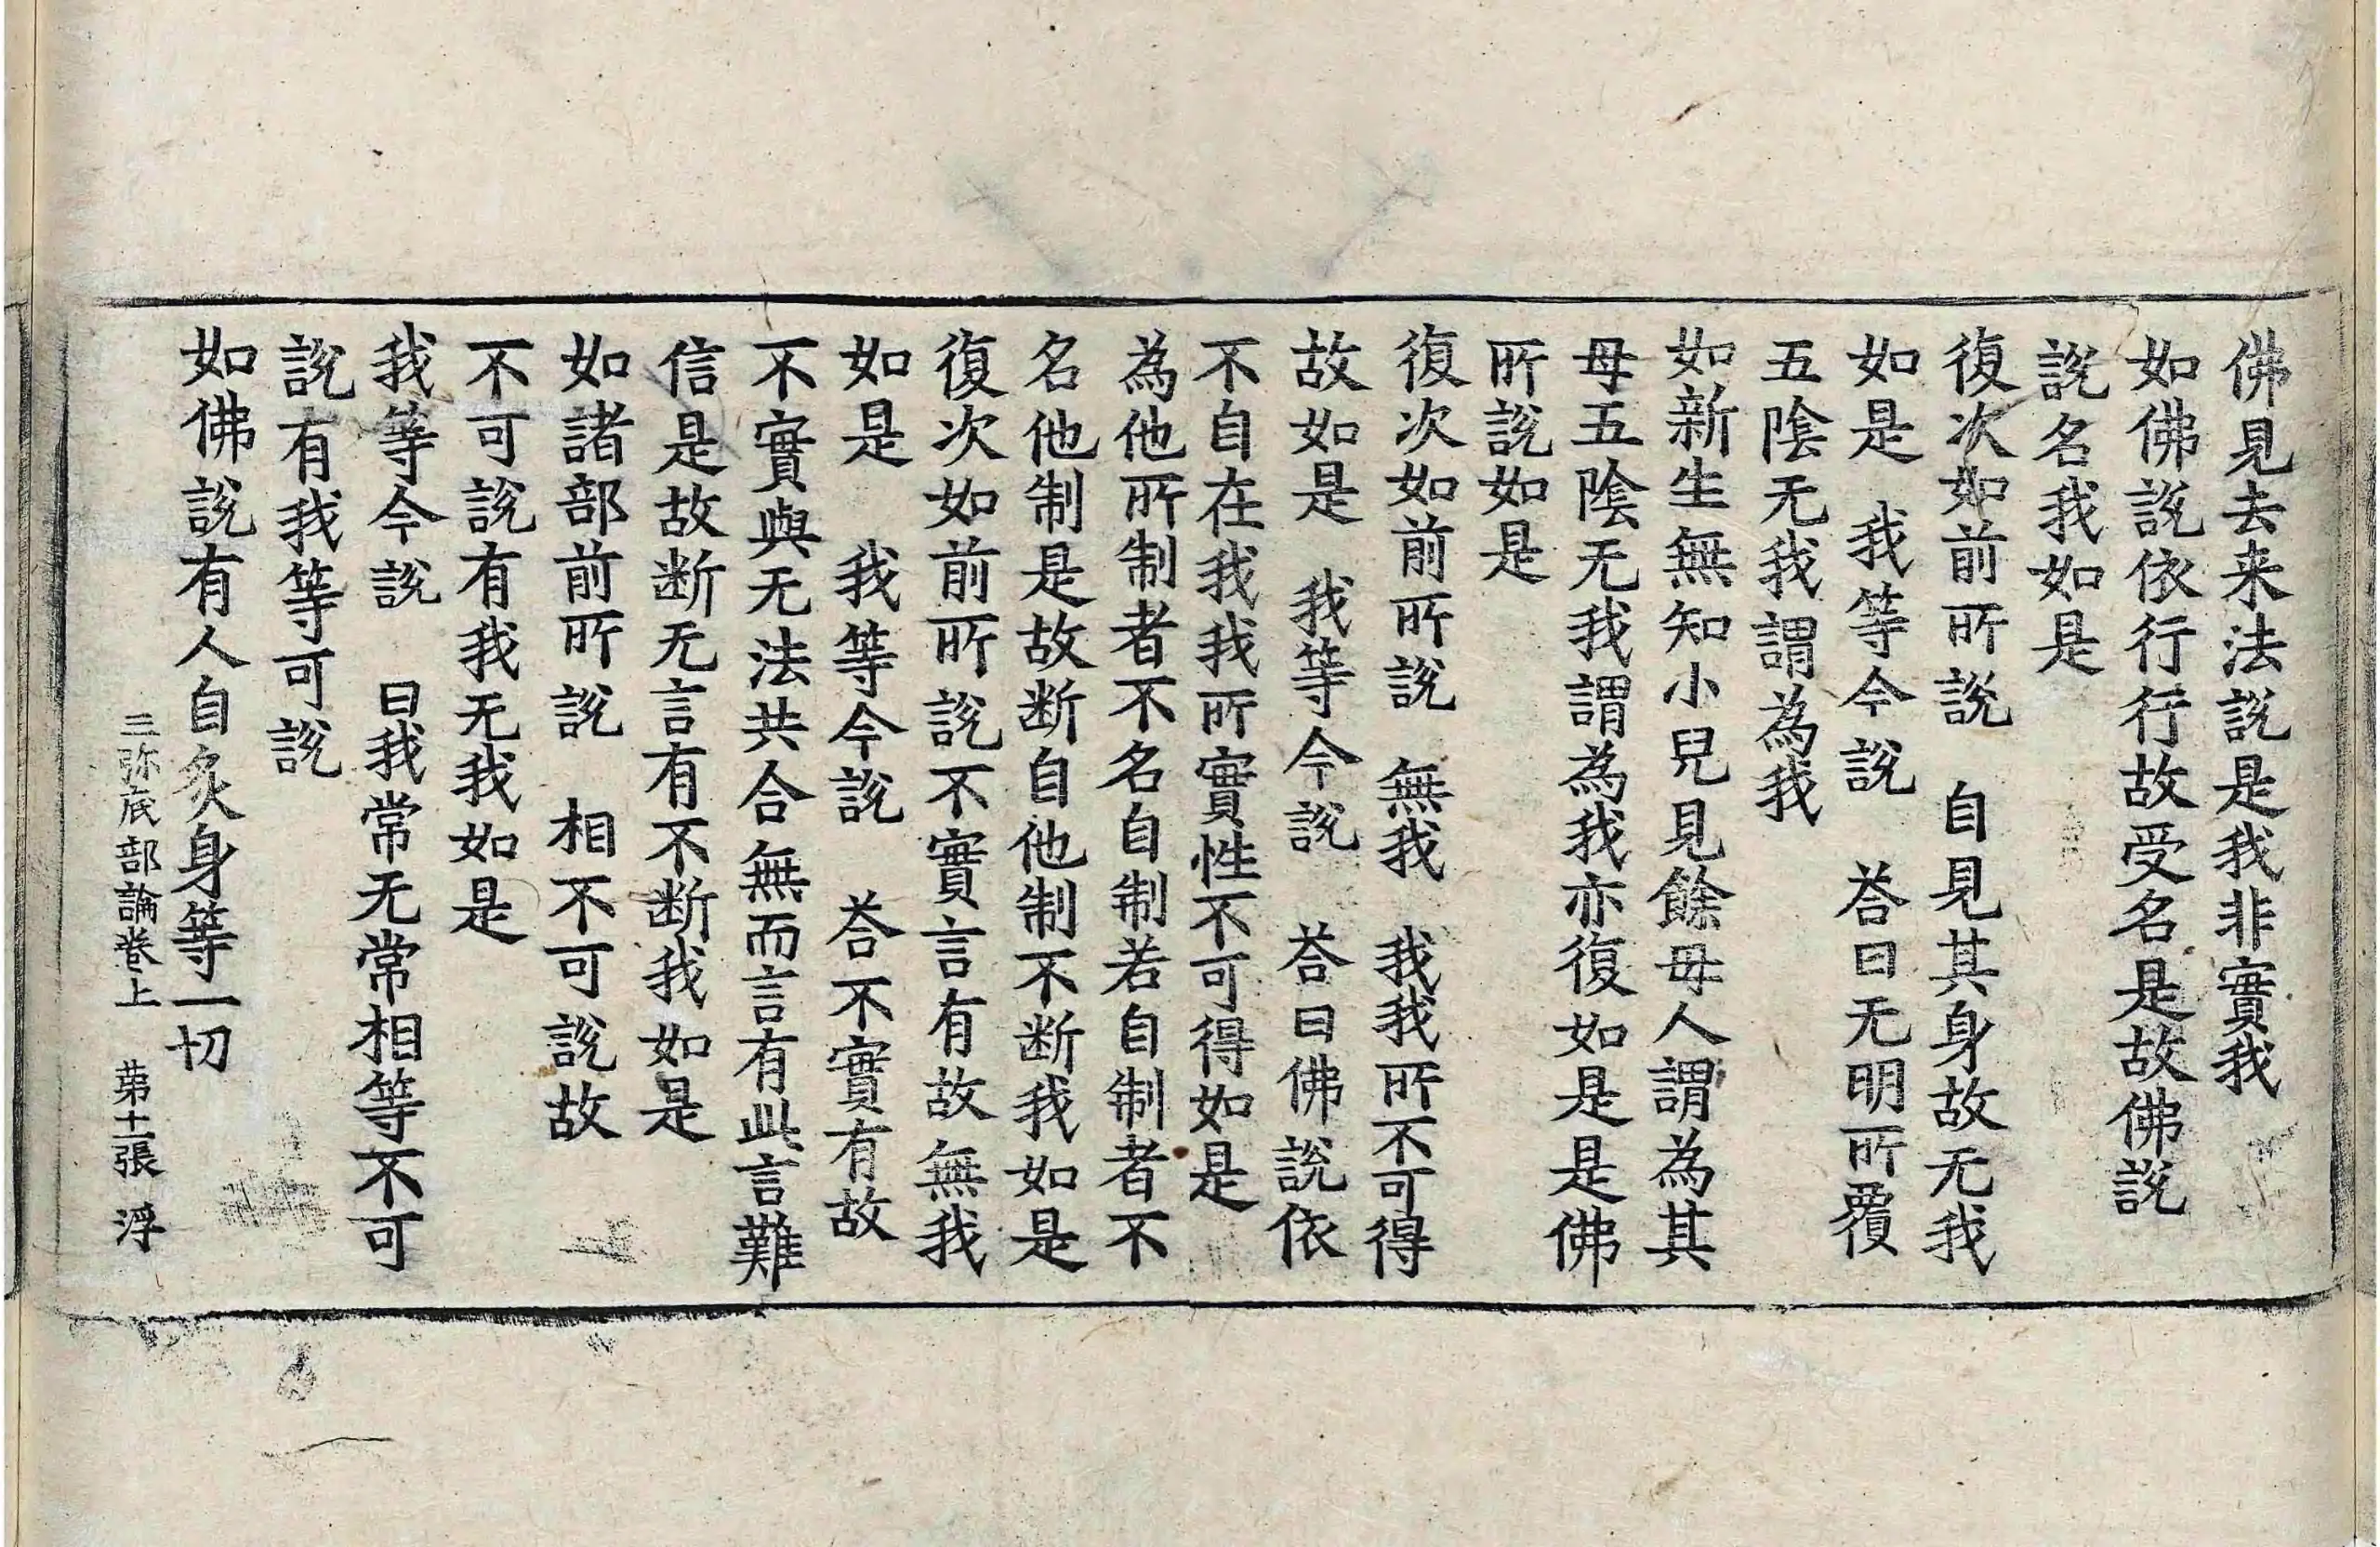 佛見去来法說是我非實我
如佛說依行行故受名是故佛說
說名我如是
復次如前所說　自見其身故无我
如是　我等今說　荅曰无明所覆
五陰无我謂為我
如新生無知小兒見餘母人謂為其
母五陰无我謂為我亦復如是是佛
所說如是
復次如前所說　無我　我我所不可得
故如是　我等今說　荅曰佛說依
不自在我我所實性不可得如是
為他所制者不名自制若自制者不
名他制是故断自他制不断我如是
復次如前所說不實言有故無我
如是　我等今說　荅不實有故
不實與无法共合無而言有此言難
信是故断无言有不断我如是
如諸部前所說　相不可說故
不可說有我无我如是
我等今說　曰我常无常相等不可
說有我等可說
如佛說有人自炙身等一切
三弥底部論卷上　苐十一張　浮